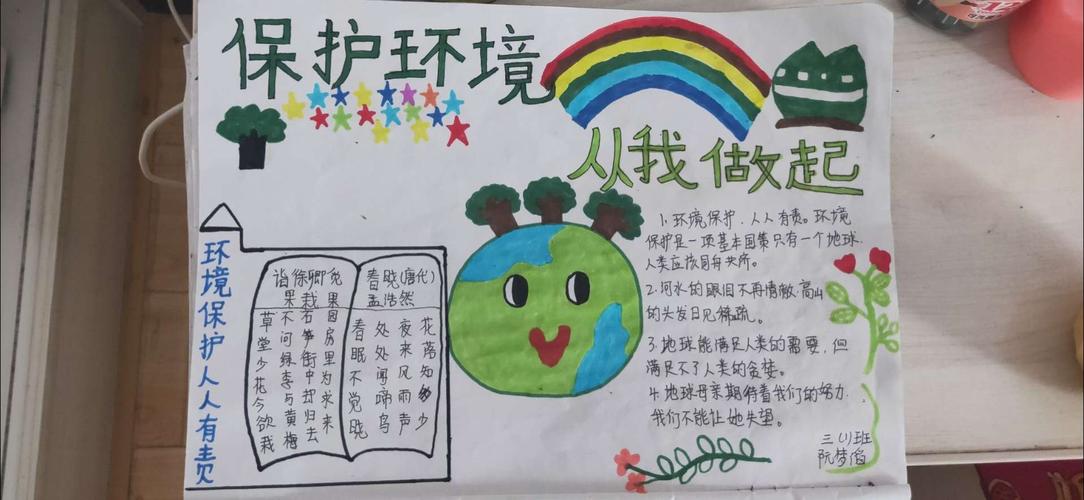 保护环境
从我做起
环境保护人人有责
诣徐卿觅
果栽
草堂少花今欲栽
不问绿李与黄梅
石笋街中却归去
果园房里为求来
春晓(唐代)
孟浩然
春眠不觉晓
处处闻啼鸟
夜来风雨声
花落知多少
1、环境保护、人人有责。环境
保护是一项基本国策只有一个地球、
人类应该同舟共济。
2.河水的眼泪不再清澈、高山
的头发日见稀疏。
3.地球能满足人类的需要,但
满足不了人类的贪婪。
4.地球母亲期待着我们的努力、
我们不能让她失望。
三(1)班
阮梦